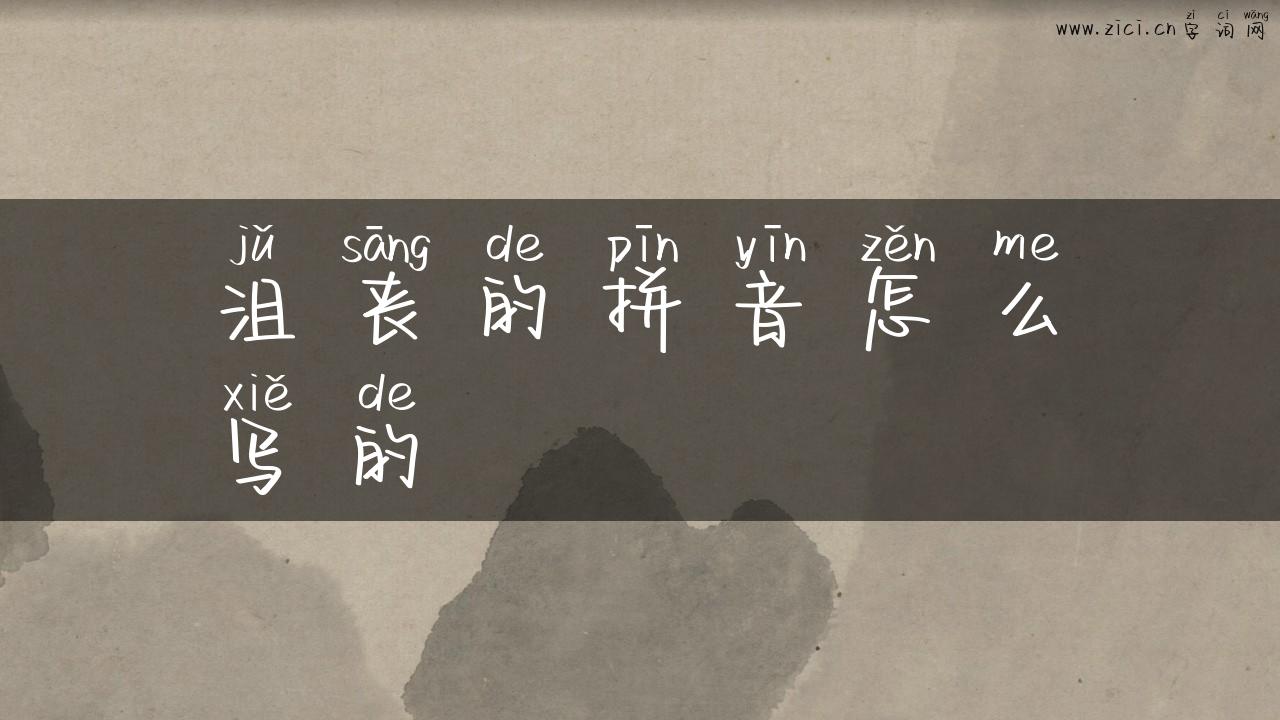 zì cí wǎng
www.zici.cn 字词网
jǔ sāng de pīn yīn zěn me
沮丧的拼音怎么
xiě de
写的